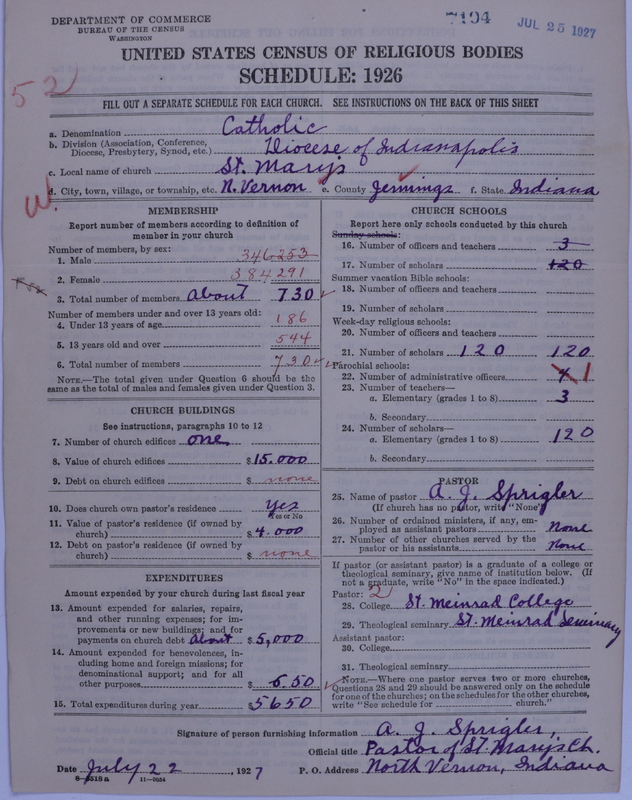 DEPARTMENT OF COMMERCE
BUREAU OF THE CENSUS
WASHINGTON
7194
JUL 25 1927
UNITED STATES CENSUS OF RELIGIOUS BODIES
SCHEDULE: 1926
52
FILL OUT A SEPARATE SCHEDULE FOR EACH CHURCH. SEE INSTRUCTIONS ON THE BACK OF THIS SHEET
a. Denomination Catholic
b. Division (Association, Conference, Diocese, Presbytery, Synod, etc.) Diocese of Indianapolis
c. Local name of church St. Mary's
d. City, town, village, or township, etc. N. Vernon e. County Jennings f. State Indiana
W.
MEMBERSHIP
Report number of members according to definition of
member in your church
Number of members, by sex:
1. Male 346 253
2. Female 384 291
3. Total number of members About 730
Number of members under and over 13 years old:
4. Under 13 years of age 186
5. 13 years old and over 544
6. Total number of members 730
NOTE.—The total given under Question 6 should be the
same as the total of males and females given under Question 3.
CHURCH BUILDINGS
See instructions, paragraphs 10 to 12
7. Number of church edifices one
8. Value of church edifices $ 15.000
9. Debt on church edifices $ none
10. Does church own pastor's residence? Yes
Yes or No
11. Value of pastor's residence (if owned by
church) $ 4.000
12. Debt on pastor's residence (if owned by
church) $ none
EXPENDITURES
Amount expended by your church during last fiscal year
13. Amount expended for salaries, repairs,
and other running expenses; for im-
provements or new buildings; and for
payments on church debt About $ 5,000
14. Amount expended for benevolences, in-
cluding home and foreign missions; for
denominational support; and for all
other purposes $ 6.50
15. Total expenditures during year $ 5650
CHURCH SCHOOLS
Report here only schools conducted by this church
Sunday schools:
16. Number of officers and teachers 3
17. Number of scholars 120
Summer vacation Bible schools:
18. Number of officers and teachers
19. Number of scholars
Week-day religious schools:
20. Number of officers and teachers
21. Number of scholars 120 120
Parochial schools:
22. Number of administrative officers 4 1
23. Number of teachers—
a. Elementary (grades 1 to 8) 3
b. Secondary
24. Number of scholars—
a. Elementary (grades 1 to 8) 120
b. Secondary
PASTOR
25. Name of pastor A. J. Sprigler
(If church has no pastor, write "None")
26. Number of ordained ministers, if any, em-
ployed as assistant pastors None
27. Number of other churches served by the
pastor or his assistants None
If pastor (or assistant pastor) is a graduate of a college or
theological seminary, give name of institution below. (If
not a graduate, write "No" in the space indicated.)
Pastor: 2
28. College St. Meinrad College
29. Theological seminary St. Meinrad Seminary
Assistant pastor:
30. College
31. Theological seminary
NOTE.—Where one pastor serves two or more churches,
Questions 28 and 29 should be answered only on the schedule
for one of the churches; on the schedules for the other churches,
write "See schedule for church."
Signature of person furnishing information A. J. Sprigler,
Official title Pastor of St. Mary's Ch.
Date July 22, 1927 P. O. Address North Vernon, Indiana
8—8518 a 11—9054